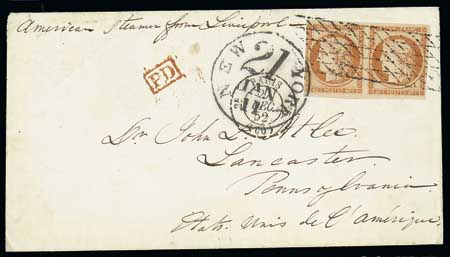 American Steamer from Liverpool
PD
NEW YORK
21
JAN
PARIS
DEC.
52
(60)
Dr. John L. Atlee.
Lancaster
Pennsylvania
Etats Unis de L'Amérique.